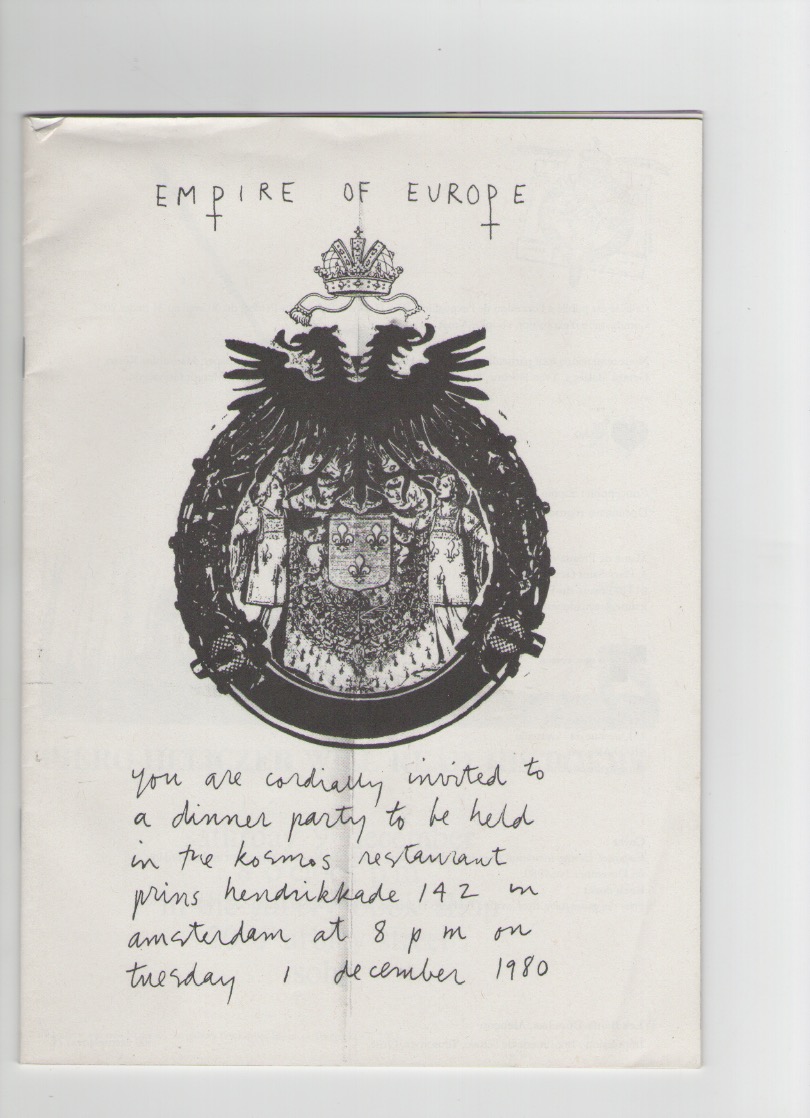 EMPIRE OF EUROPE
you are cordially invited to
a dinner party to be held
in the kosmos restaurant
prins hendrikkade 142 in
amsterdam at 8 p m on
tuesday 1 december 1980